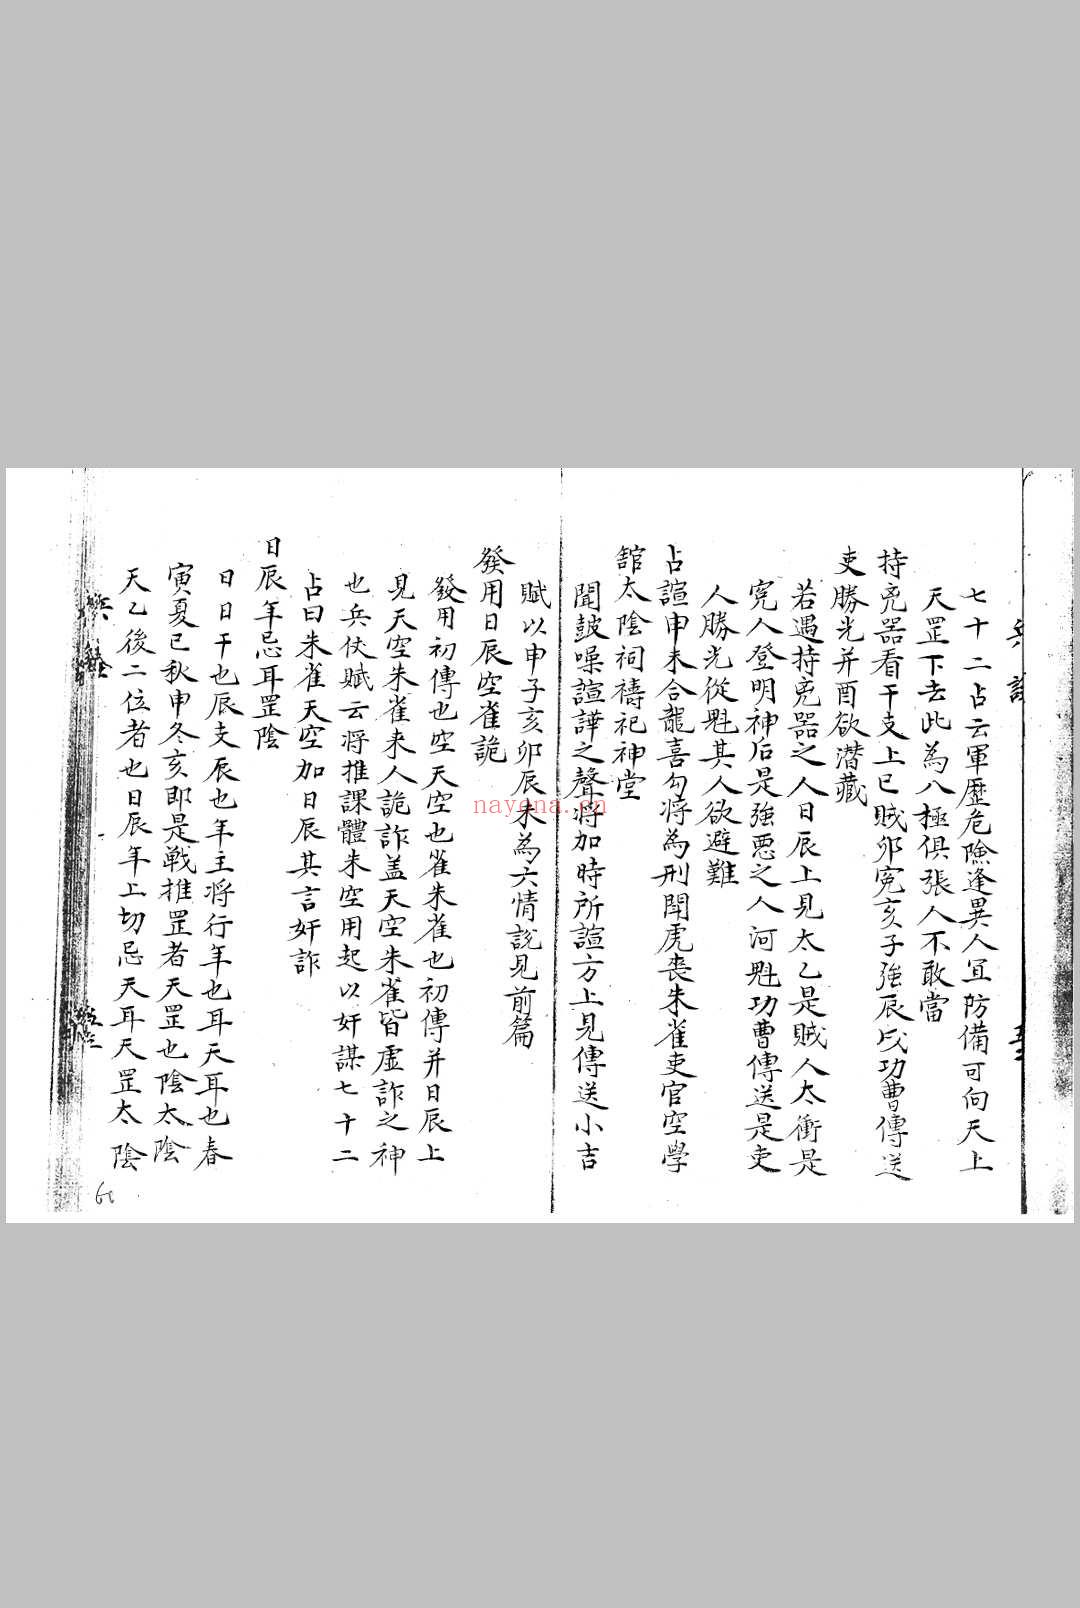 七十二占云軍歷危險逢異人宜防備可向天上
天罡下去此為八極俱張人不敢當
持兇器看干支上巳賊卯寃亥子強辰戌功曹傳送
吏勝光并酉欲潛藏
若遇持兇器之人日辰上見太乙是賊人太衝是
寃人登明神后是強惡之人河魁功曹傳送是吏
人勝光從魁其人欲避難
占諠申未合龍喜勾將為刑鬪虎喪朱雀吏官空學
舘太陰祠禱祀神堂
聞鼓噪諠譁之聲將加時所諠方上見傳送小吉
賦以申子亥卯辰未為六情說見前篇
發用日辰空雀詭
發用初傳也空天空也雀朱雀也初傳并日辰上
見天空朱雀来人詭詐盖天空朱雀皆虛詐之神
也兵仗賦云将推課體朱空用起以奸謀七十二
占曰朱雀天空加日辰其言奸詐
日辰年忌耳罡陰
日日干也辰支辰也年主将行年也耳天耳也春
寅夏巳秋申冬亥即是戰推罡者天罡也陰太陰
天乙後二位者也日辰年上切忌天耳天罡太陰
nayona.cn